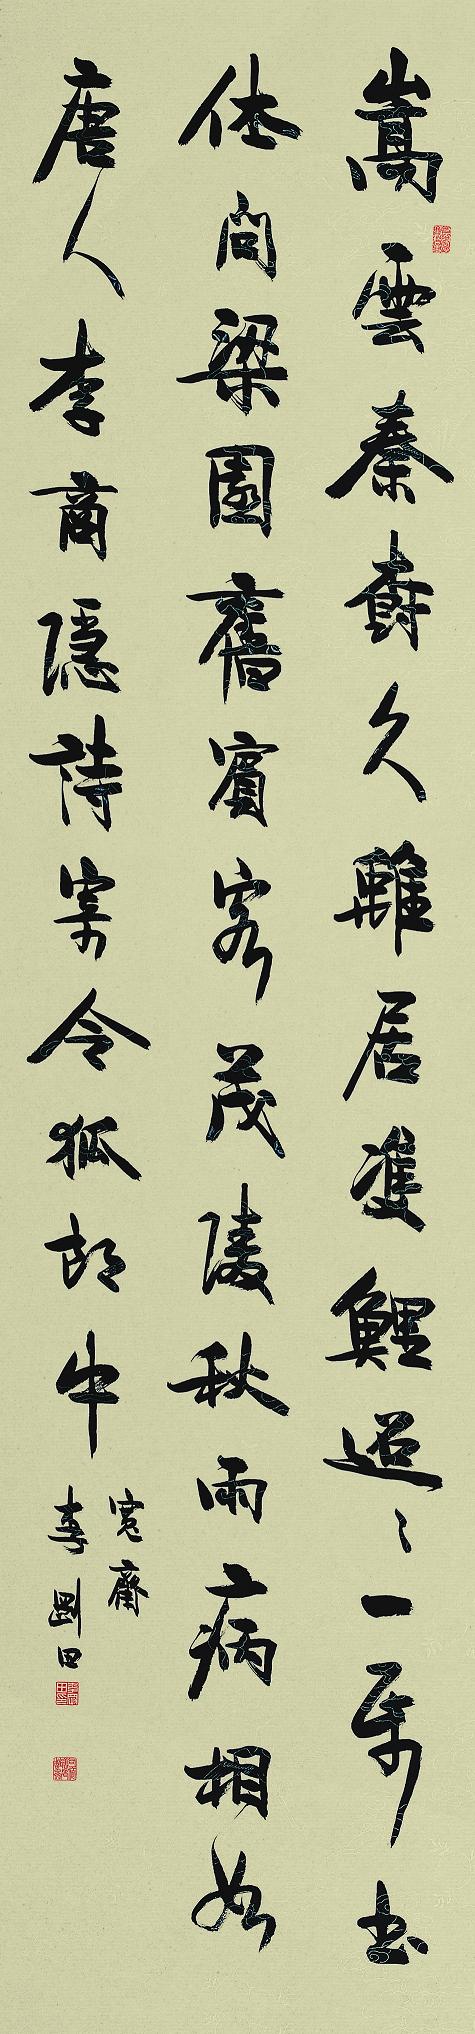 嵩雲秦樹久離居雙鯉迢〻一帋書
休問梁園舊賓客茂陵秋雨病相如
唐人李商隱詩寄令狐郎中
寬齋
李剛田